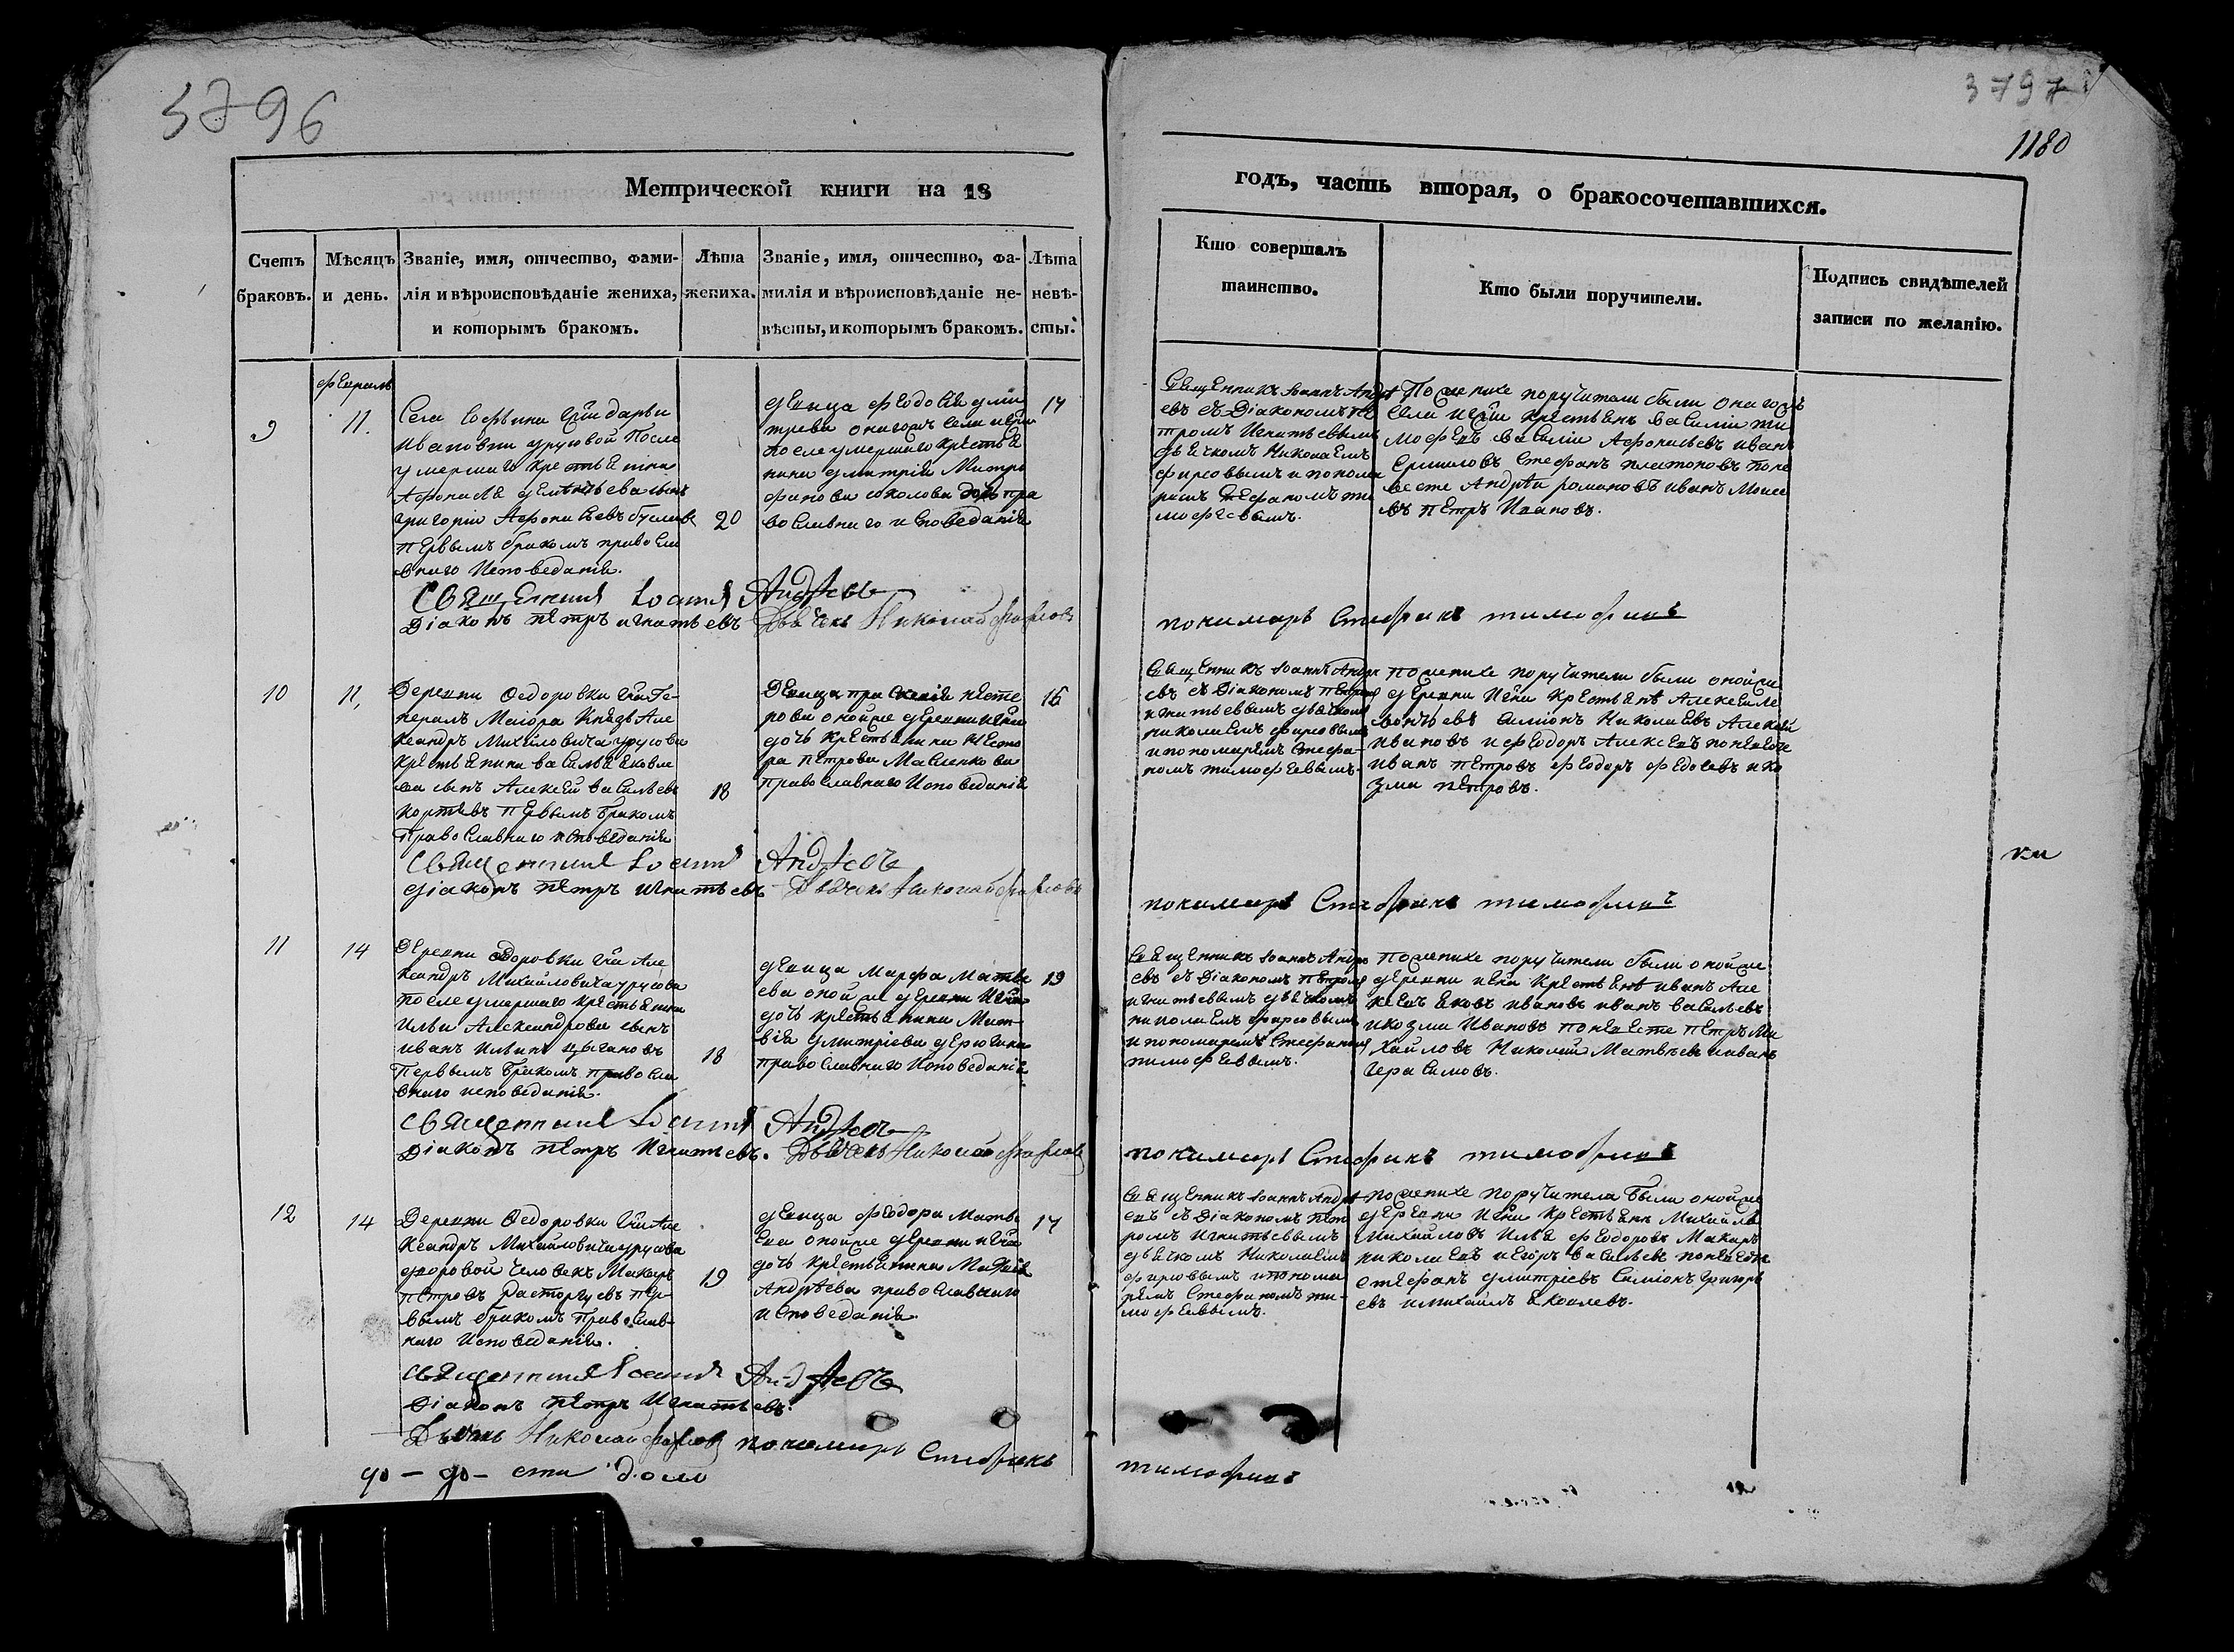 3796
3797
1180
Метрической книги на 18
годъ, часть вторая, о бракосочетавшихся.
Счетъ браковъ.
Мѣсяцъ и день.
Званіе, имя, отчество, фами-
лія и вѣроисповѣданіе жениха,
и которымъ бракомъ.
Лѣта
жениха.
Званіе, имя, отчество, фа-
милія и вѣроисповѣданіе не-
вѣсты, и которымъ бракомъ.
Лѣта
невѣ-
сты.
Кто совершалъ
таинство.
Кто были поручители.
Подпись свидѣтелей
записи по желанію.
9
11.
Ивановны урусовой После
умершаго крестьянина
григорій
20
первымъ бракомъ правосла
внаго Исповеданія.
девица феодосія дми
после умершаго крестья
нина дмитрія Митро
фанова соколова дочь пра
вославнаго исповеданія
Священникъ Іоаннъ Андре
евъ съ Діакономъ пе
тромъ Игнатьевымъ
дьячкомъ Николаемъ
фирсовымъ и понома
ремъ стефаномъ ти
мофеевымъ.
По женихе поручители были
села крестьяне василій ти
мофеевъ василій Афонасьевъ иванъ
Ермиловъ Стефанъ платоновъ по не
весте Андрей романовъ иванъ Моисе
евъ петръ Ивановъ.
Священникъ Іоаннъ Андреевъ
Діаконъ петръ игнатьевъ Дьячекъ Николай фирсовъ
пономарь Стефанъ тимофеевъ
10
11,
Деревни Федоровки Ге-
нералъ Маіора Князя Але
ксандръ Михайловича урусова
крестьянина василья яковле
ва сынъ Алексей васильевъ
18
первымъ бракомъ
Православнаго исповеданія
Девица прасковія несте
рова оной же деревни
дочь крестьянина несте
ра петрова Масленкова
православнаго Исповеданія
16
Священникъ Іоаннъ Андре
евъ съ Діакономъ петромъ
игнатьевымъ дьячкомъ
николаемъ фирсовымъ
и пономаремъ стефа-
номъ тимофеевымъ.
По женихе поручители были оной же
деревни крестьяне Алексей ле
онтьевъ симіонъ Николаевъ Алексей
ивановъ и феодоръ Алексеевъ по невесте
иванъ петровъ феодоръ федосеевъ и ко
зма петровъ.
Священникъ Іоаннъ Андреевъ
діаконъ петръ игнатьевъ Дьячекъ Николай фирсовъ
пономарь Стефанъ тимофеевъ
11
14
Деревни Федоровки Але
ксандръ Михайловича урусова
после умершаго крестьянина
Ильи Александрова сынъ
иванъ Ильинъ цыгановъ
18
Первымъ бракомъ правосла
внаго исповеданія.
девица Марфа Матве
ева оной же деревни
дочь крестьянина Мат-
вія дмитріева дерюгина
православнаго Исповеданія
19
Священникъ Іоаннъ Андре
евъ съ Діакономъ петромъ
игнатьевымъ дьячкомъ
николаемъ фирсовымъ
и пономаремъ Стефаномъ
тимофеевымъ.
По женихе поручители были оной же
деревни крестьяне иванъ Але
ксеевъ яковъ ивановъ иванъ васильевъ
и козма Ивановъ по невесте петръ Ми
хайловъ Николай Матвеевъ и иванъ
герасимовъ.
Священникъ Іоаннъ Андреевъ
Діаконъ петръ Игнатьевъ. Дьячекъ Николай фирсовъ
пономарь Стефанъ тимофеевъ
12
14
Деревни Федоровки Але
ксандръ Михайловича урусова
дворовой человекъ Макаръ
петровъ Расторгуевъ пер-
19
вымъ бракомъ Православ-
наго Исповеданія.
девица феодора Матве
ева оной же деревни
дочь крестьянина Матвія
Андрѣева православнаго
исповеданія.
17
Священникъ Іоаннъ Андре
евъ съ Діакономъ пет
ромъ Игнатьевымъ
дьячкомъ Николаемъ
фирсовымъ и понома
ремъ Стефаномъ ти-
мофеевымъ.
по женихе поручители были оной же
деревни крестьяне Михайла
михайловъ илья феодоровъ Макаръ
николаевъ и егоръ васильевъ по невесте
стефанъ дмитріевъ симіонъ григорь
евъ и михайлъ яковлевъ.
Священникъ Іоаннъ Андреевъ
Діаконъ петръ Игнатьевъ.
Дьячекъ Николай фирсовъ пономарь Стефанъ
тимофеевъ